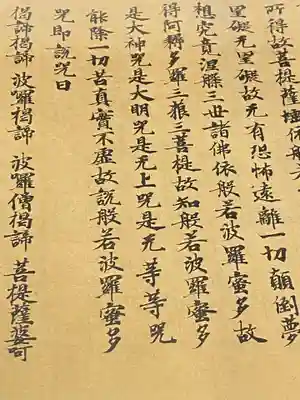 所得故菩提薩埵依般若
罣礙无罣礙故无有恐怖遠離一切顛倒夢
想究竟涅槃三世諸佛依般若波羅蜜多故
得阿耨多羅三貌三菩提故知般若波羅蜜多
是大神咒是大明咒是无上咒是无等等咒
能除一切苦真實不虛故説般若波羅蜜多
咒即説咒曰
揭諦揭諦 波囉揭諦 波囉僧揭諦 菩提薩婆訶